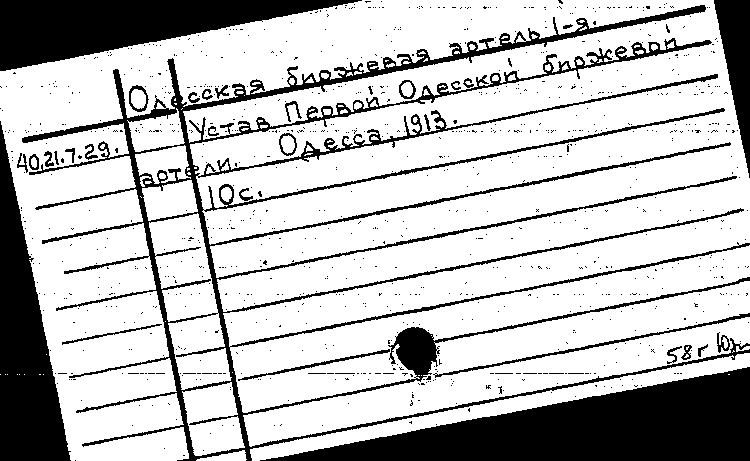 Одесская биржевая артель, 1-я.
Устав Первой Одесской биржевой
40.21.7.29.
артели. Одесса, 1913.
10с.
58г